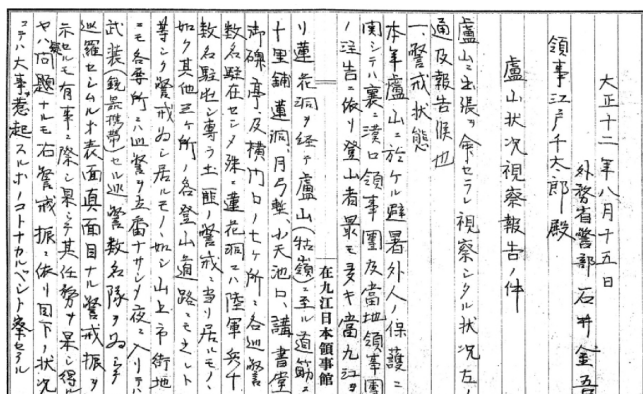 大正十二年八月十五日
外務省警部 石井金吾
領事江戸千太郎殿
盧山状況視察報告ノ件
盧山ニ出張ヲ命セラレ視察シタル状況左ノ
通及報告候也
一、警戒状態
本年盧山ニ於ケル避暑外人ノ保護ニ
関シテハ曩ニ漢口領事團及當地領事團
ノ注告ニ依リ登山者最モ多キ當九江ヨ
在九江日本領事館
リ蓮花洞ヲ経テ盧山(牯嶺)ニ至ル道筋ニ
十里舗蓮洞、月弓塹、小天池口、講書堂
御碑亭及横門口ノ七ヶ所ニ各巡警
数名駐在セシメ殊ニ蓮花洞ニハ陸軍兵十
数名駐屯シ専ラ土匪ノ警戒ニ当リ居ルモノヽ
如ク其他三ヶ所ノ各登山道路ニモ之レト
等シク警戒ヲ為シ居ルモノヽ如シ山上市街地
ニモ各要所ニハ巡警ヲ立番ナサシメ夜ニ入リテハ
武装(銃器携帯)セル巡警数名隊ヲ為シテ
巡羅セシムル等表面真面目ナル警戒振ヲ
示セルモ有事ニ際シ果シテ其任務ヲ果シ得ル
ヤハ疑問ナルモ右警戒振ニ依リ目下ノ状況
ニテハ大事ヲ惹起スル如キコトナカルベシト察セラル